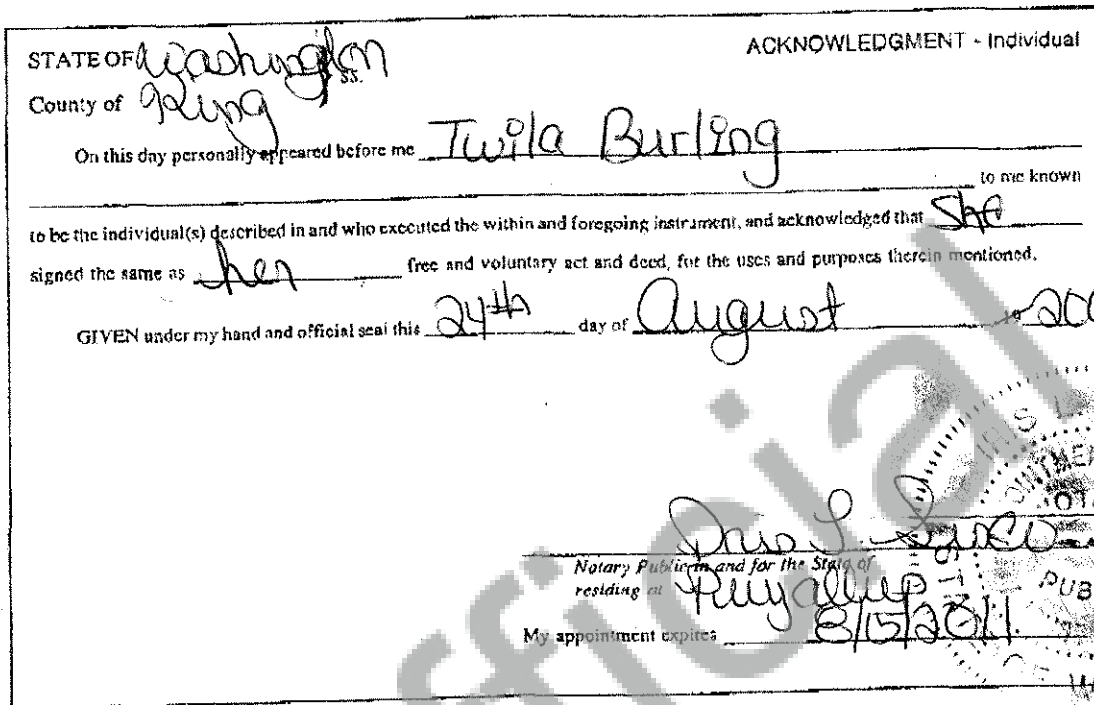 ACKNOWLEDGMENT - Individual
STATE OF Washington
ss.
County of King
On this day personally appeared before me Twila Burling
to me known
to be the individual(s) described in and who executed the within and foregoing instrument, and acknowledged that she
signed the same as her free and voluntary act and deed, for the uses and purposes therein mentioned.
GIVEN under my hand and official seal this 24th day of August 19 200
Notary Public in and for the State of
residing at Puyallup
My appointment expires 8/15/2011
PUB
fficial